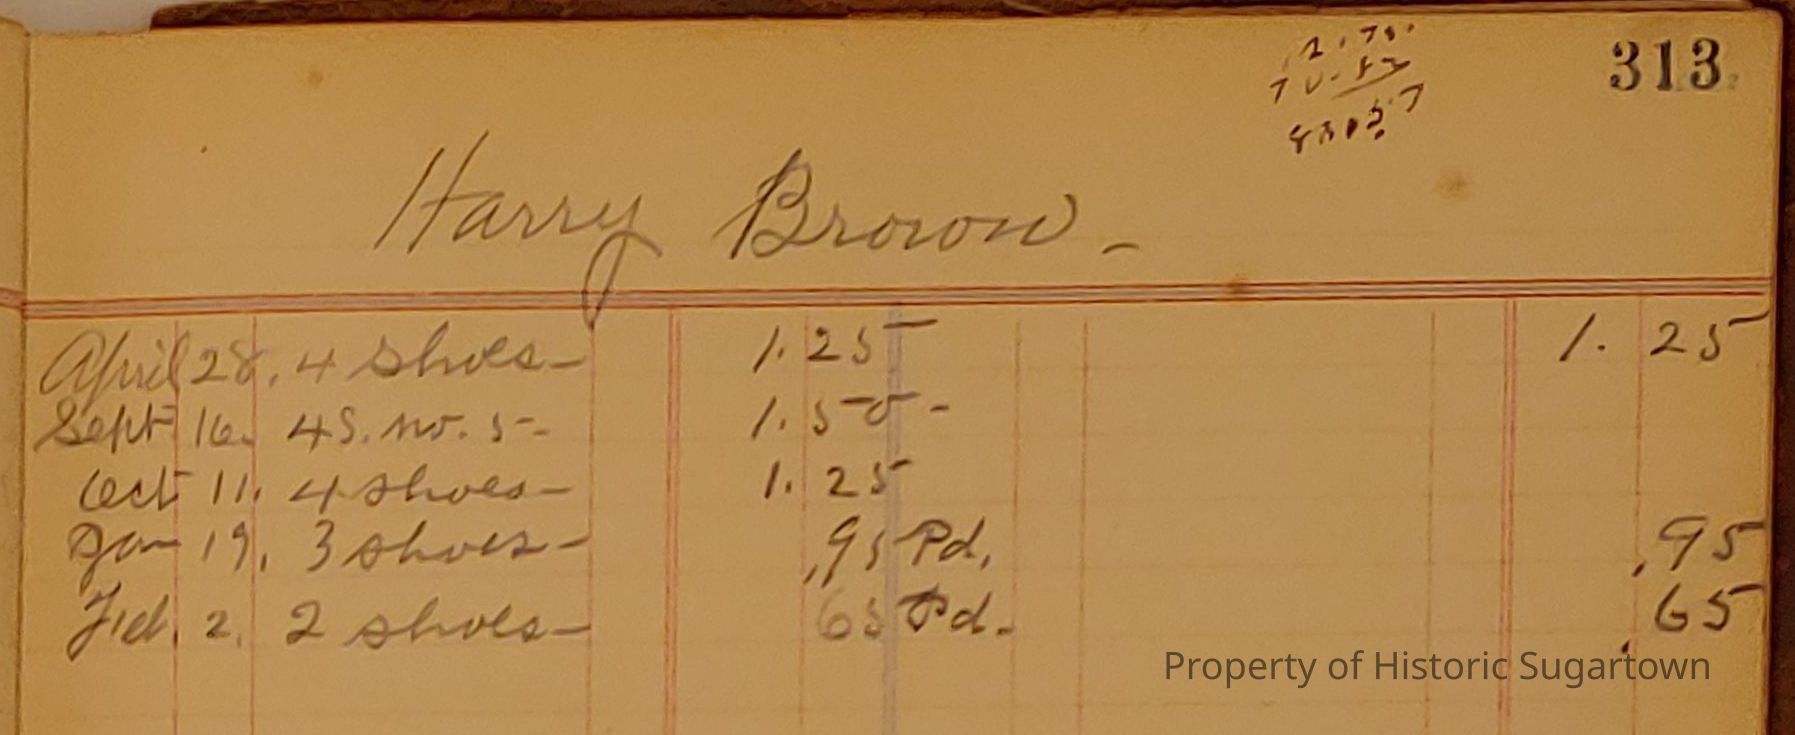 313
Harry Brown -
April 28. 4 shoes - 1.25 1.25
Sept 16. 4 S. no. 5 - 1.50 -
Oct 11. 4 shoes - 1.25
Jan 19. 3 shoes - .95 Pd. .95
Feb. 2. 2 shoes - 65 Pd. .65
Property of Historic Sugartown